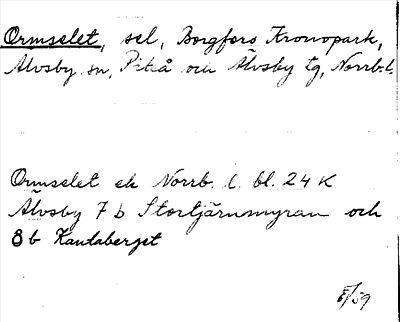 Ormselet, sel, Borgfors Kronopark,
Älvsby sn, Piteå och Älvsby tg, Norrb. l.
Ormselet ek Norrb. l. bl. 24 K
Älvsby 7 b Stortjärnmyran och
8 b Kantaberget
8/59